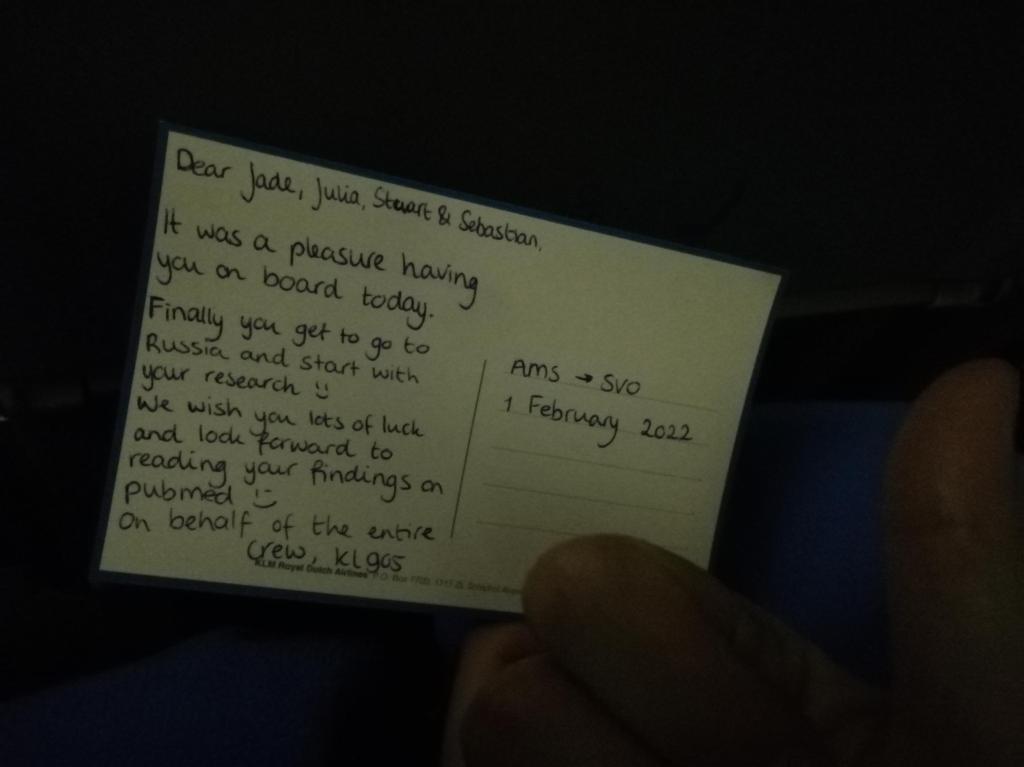 Dear Jade, Julia, Stuart & Sebastian,
It was a pleasure having
you on board today.
Finally you get to go to
Russia and start with
your research
We wish you lots of luck
and look forward to
reading your findings on
pubmed
On behalf of the entire
Crew, KL905
KLM Royal Dutch Airlines P.O. Box
AMS → SVO
1 February 2022